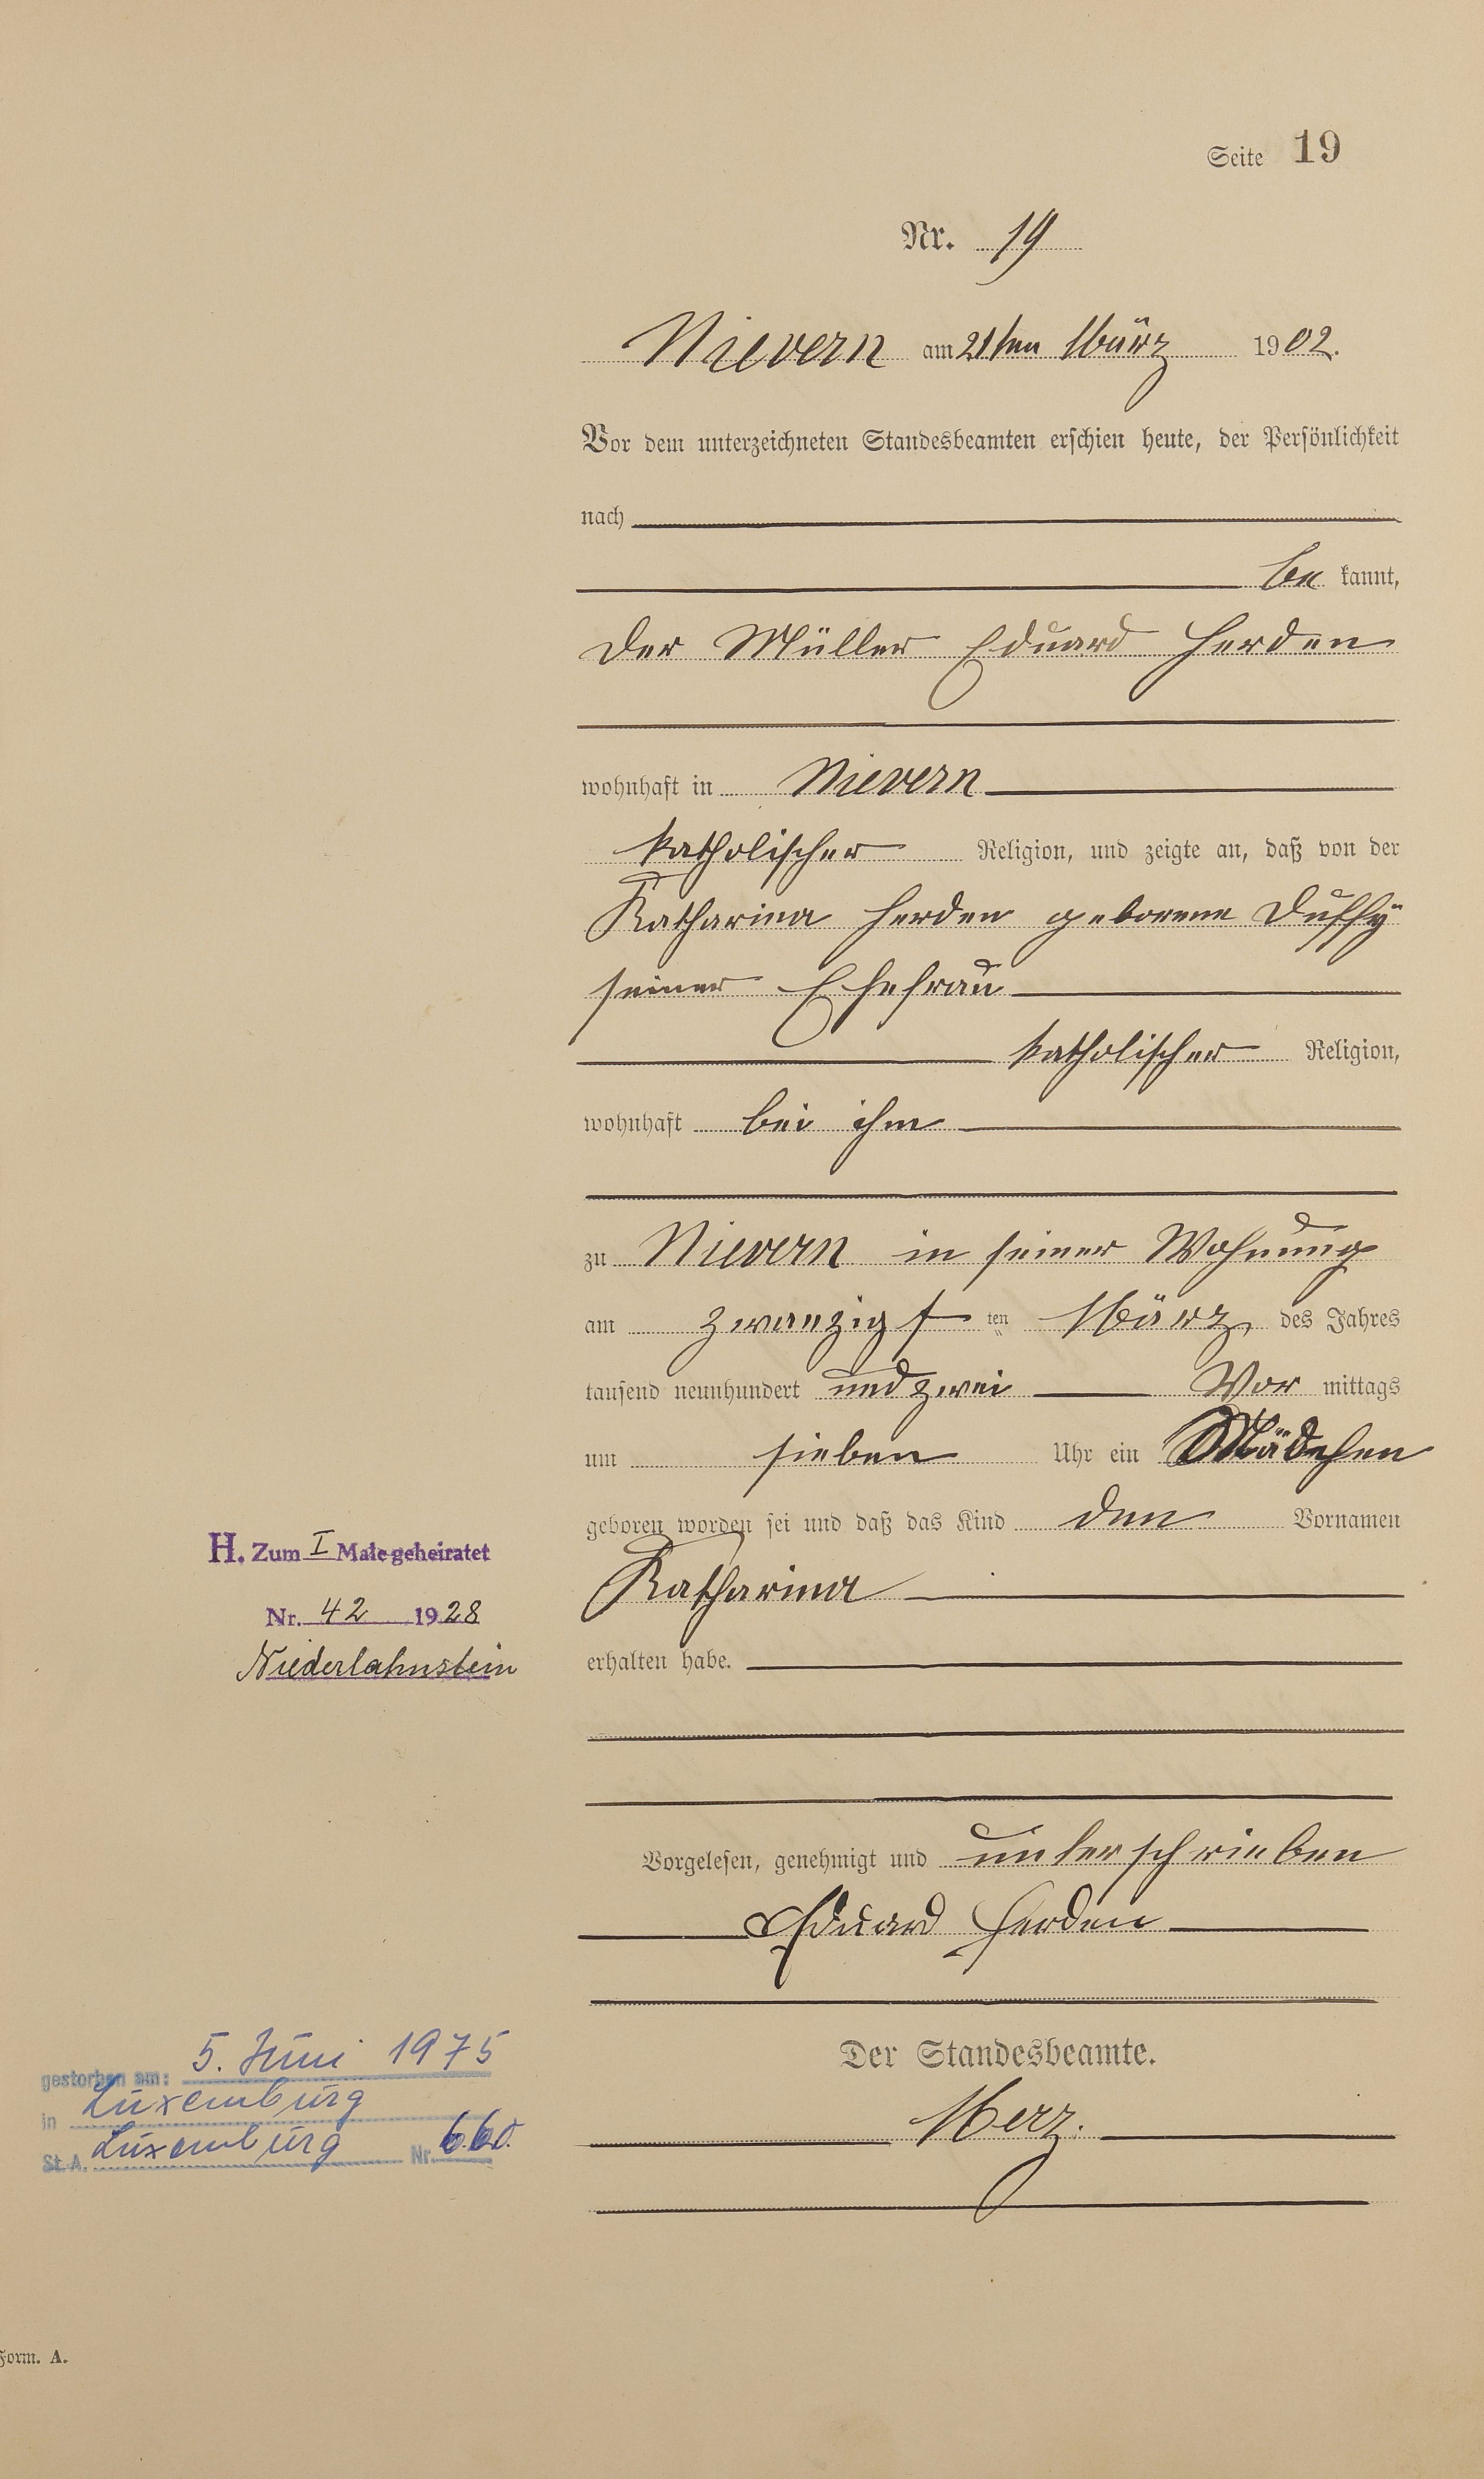 Seite 19
Nr. 19
Nievern am 21ten März 1902.
Vor dem unterzeichneten Standesbeamten erschien heute, der Persönlichkeit
nach
be kannt,
der Müller Eduard Herden
wohnhaft in Nievern
katholischer Religion, und zeigte an, daß von der
Katharina Herden geborene Duffÿ
seiner Ehefrau
katholischer Religion,
wohnhaft bei ihm
zu Nievern in seiner Wohnung
am zwanzigsten März des Jahres
tausend neunhundert und zwei Vor mittags
um sieben Uhr ein Mädchen
geboren worden sei und daß das Kind den Vornamen
Katharina
erhalten habe.
Vorgelesen, genehmigt und unterschrieben
Eduard Herden
Der Standesbeamte.
Merz.
H. Zum I Male geheiratet
Nr. 42 1928
Niederlahnstein
gestorben am: 5. Juni 1975
in Luxemburg
St. A. Luxemburg Nr. 660.
Form. A.